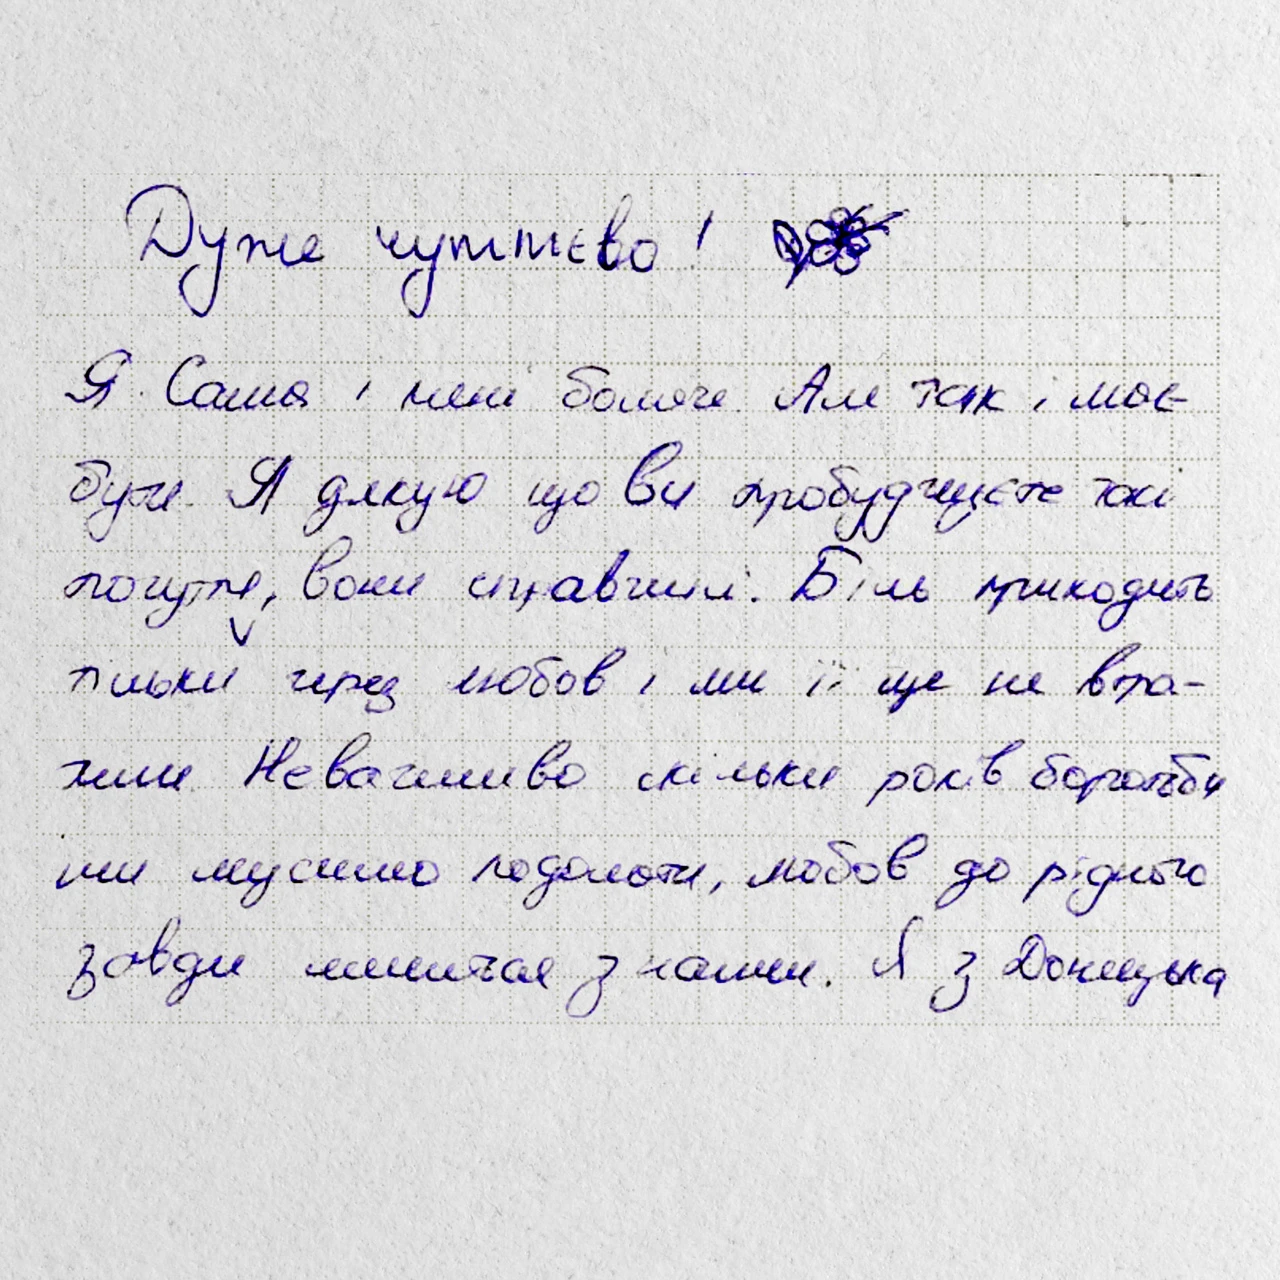 Дуже чуттєво!
Я Саша і мені боляче. Але так і має
бути. Я дякую що Ви пробуджуєте такі
почуття, вони справжні. Біль приходить
тільки через любов і ми її ще не втра-
тили. Неважливо скільки років боротьби
ми мусимо подолати, любов до рідного
завжди лишиться з нами. Я з Донецька